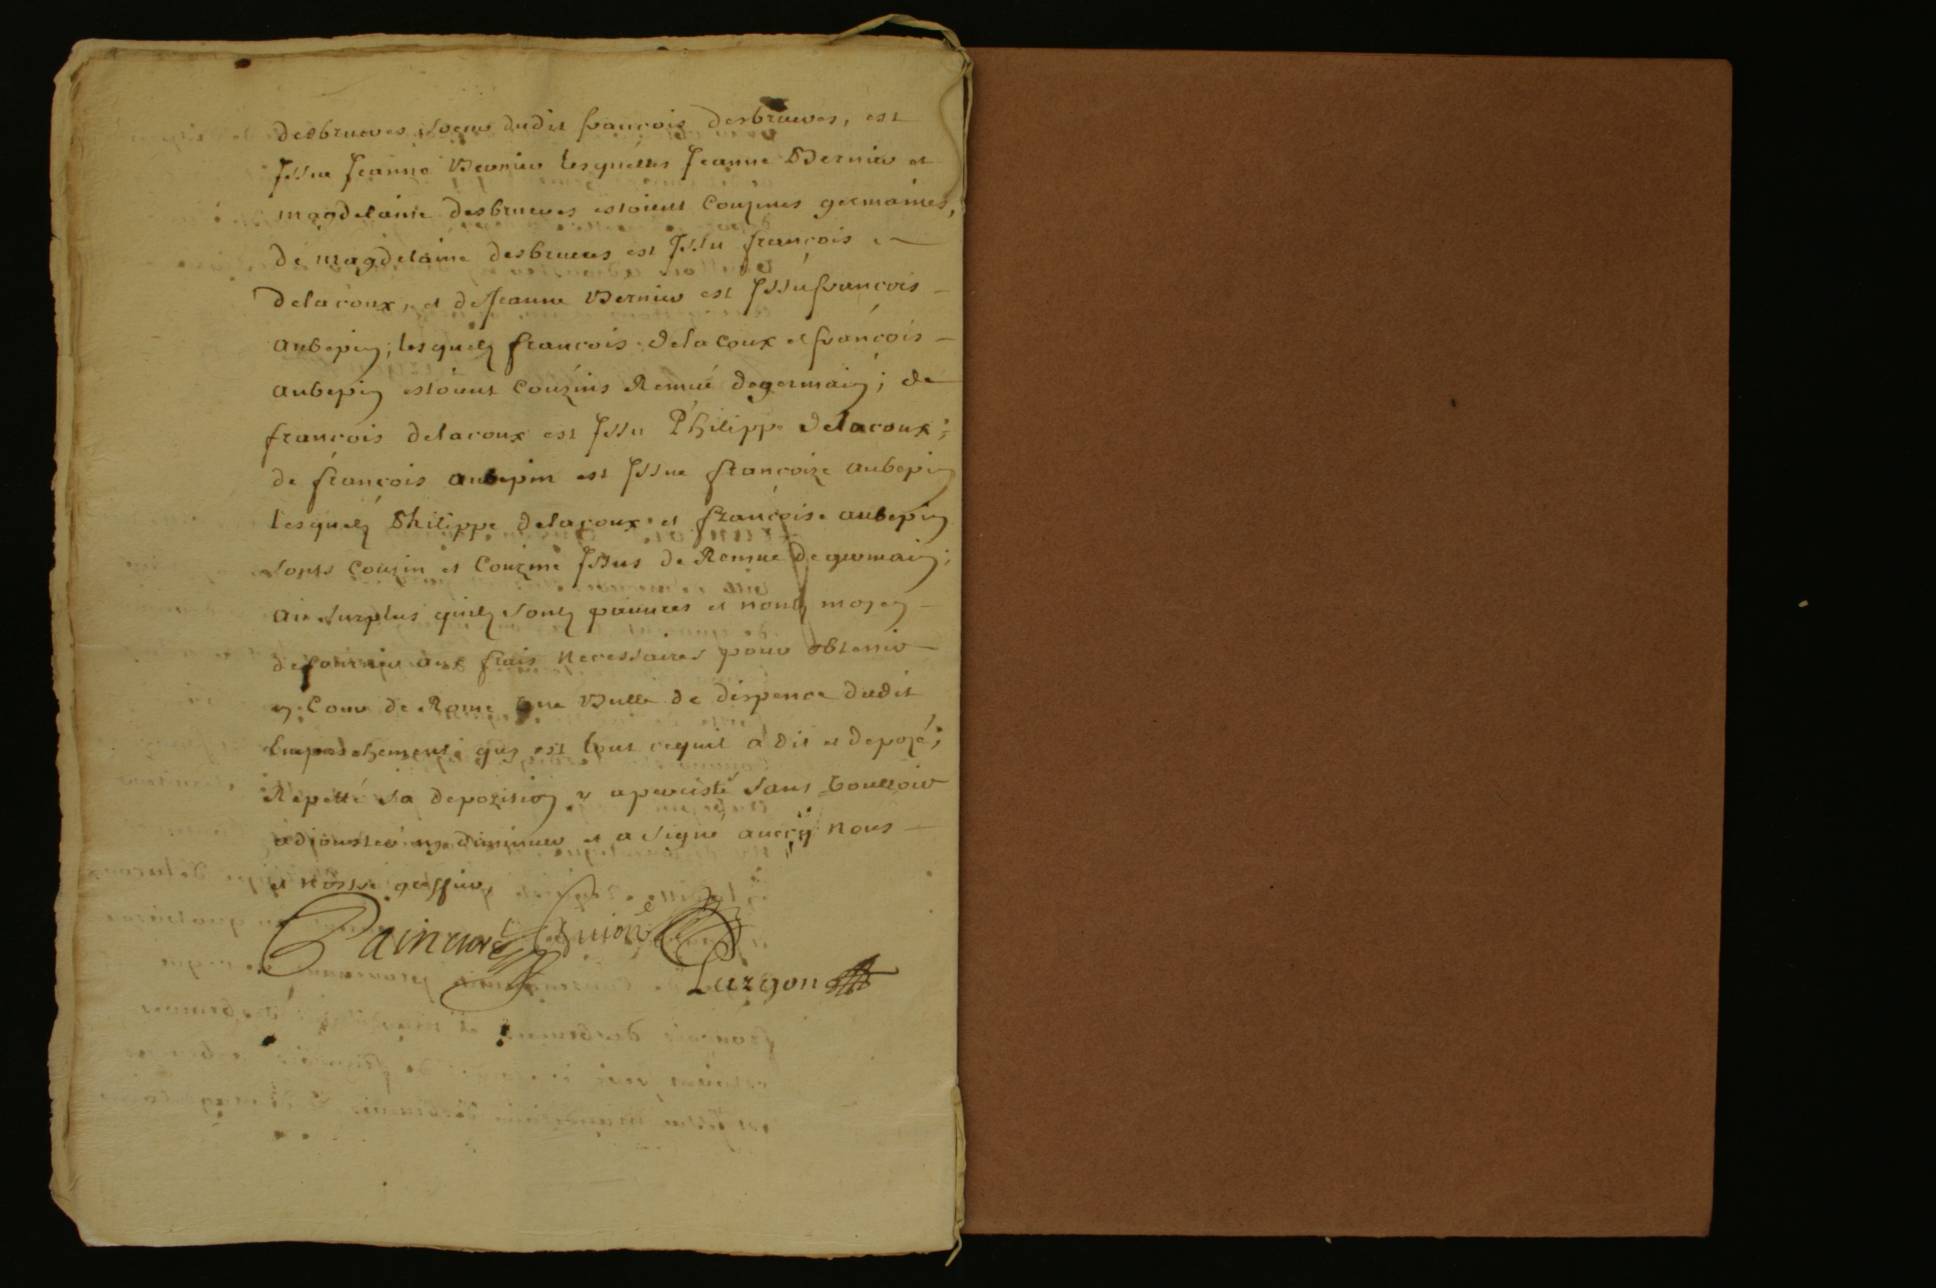 desbrueres soeur dudit françois desbrueres, est
Issue Jeanne Bernier lesquelles Jeanne Bernier et
magdelaine desbrueres estoient Couzines germaines,
de magdelaine desbrueres est Issu françois
delacoux, et de Jeanne Bernier est Issu françois
aubepin; lesquelz françois delacoux et françois
aubepin estoient Couzins Remué degermain; de
françois delacoux est Issu Philippe delacoux;
de françois aubepin est Issue françoize aubepin
lesquelz Philippe delacoux et françoise aubepin
sonts Couzin et Couzine Issus de Remué de germain;
au surplus quilz sontz pauures et nontz moyen
de fournir aux frais necessaires pour obtenir
en Cour de Rome une Bulle de dispence dudit
Empeschement; qui est tout cequil a dit et depozé;
Repetté sa depozition y a percisté sans voulloir
adjouster ny diminuer et a signé auecq nous
et nostre greffier,
Lurgon